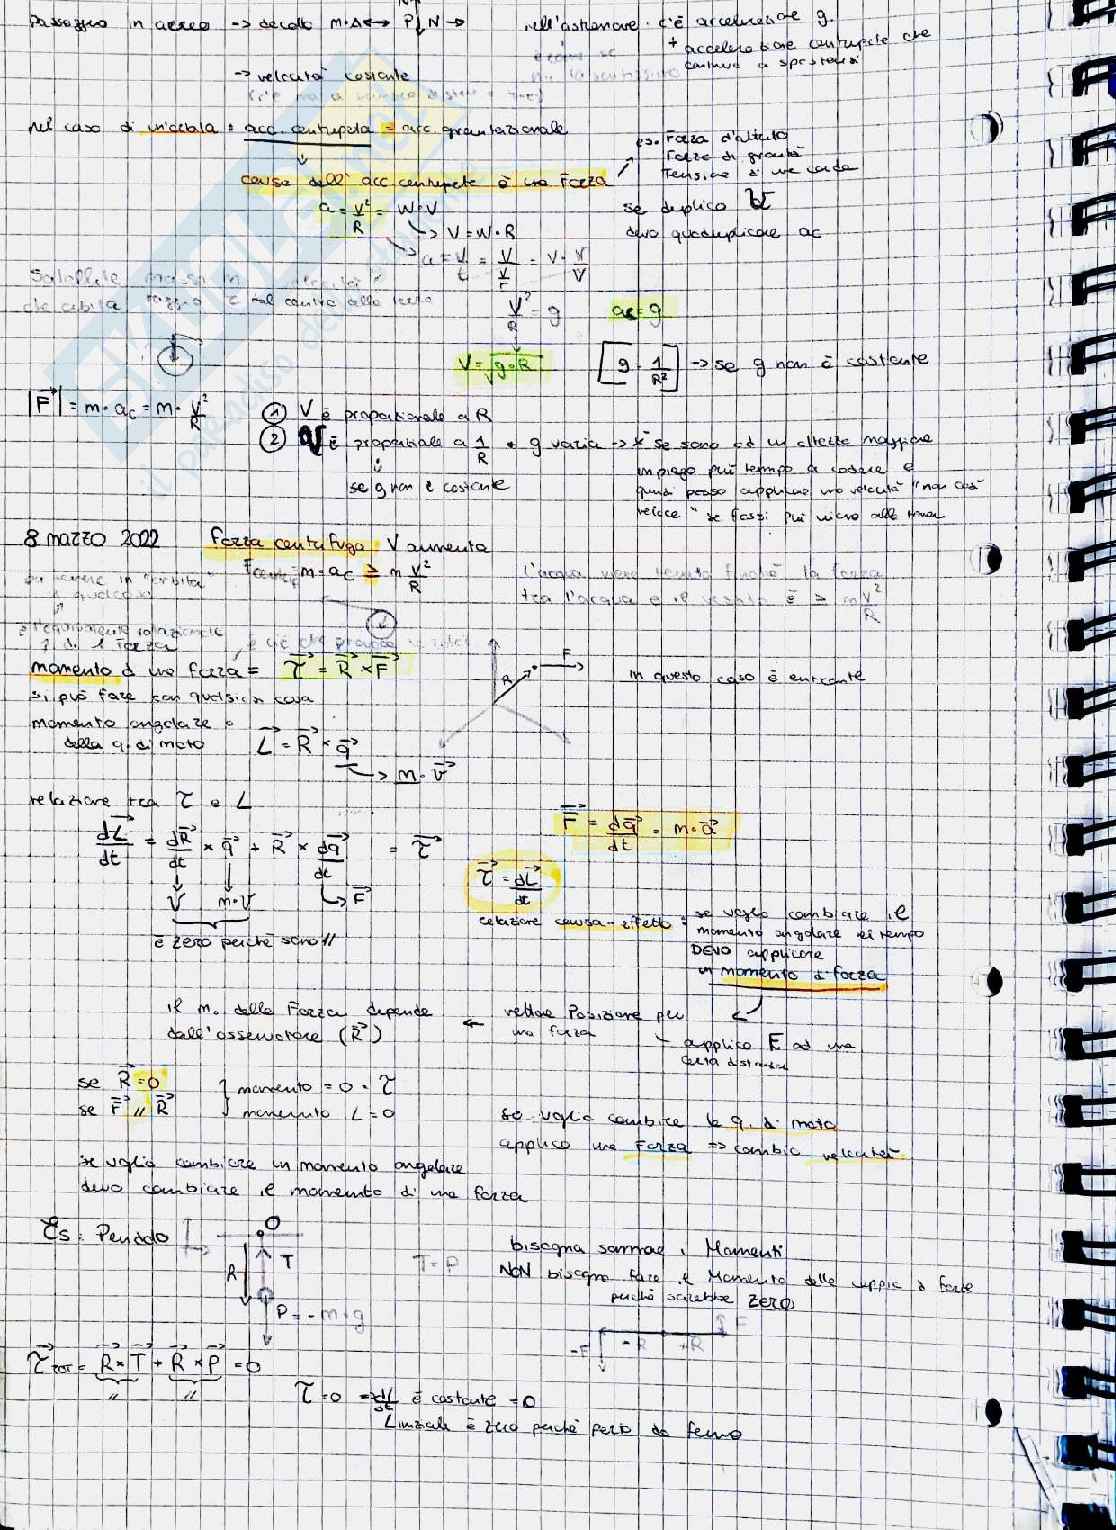 Passaggio in aereo → decollo m·A ↔ P↓N →
nell'astronave c'è accelerazione g.
+ accelerazione centripeta che
continua a spostarsi
→ velocità costante
nel caso di : acc. centripeta = acc gravitazionale
causa dell'acc centripeta è una Forza
es. Forza d'attrito
Forza di gravità
Tensione di una corda
a = V²/R = W·V
→ V = W·R
se duplico V
devo quadruplicare ac
a = V/t = V
Satellite massa m velocità
che orbita raggio r nel centro alla terra
V²/R = g
ac = g
V = √g·R
[g · 1/R²] → se g non è costante
|F| = m·ac = m·V²/R
① V è proporzionale a R
② V è proporzionale a 1/R e g varia →
se g non è costante
se sono ad un'altezza maggiore
impiego più tempo a cadere e
quindi posso applicare una velocità "non così
veloce" se fossi più vicino alla terra
8 marzo 2022
Forza centrifuga V aumenta
Fcentrip = m·ac ≥ m V²/R
L'acqua viene tenuta finché la forza
tra l'acqua e il è ≥ m V²/R
è l'equivalente rotazionale
di 1 forza
momento di una forza = τ = R × F
si può fare con qualsiasi cosa
R F
in questo caso è entrante
momento angolare o
della q. di moto L = R × q
→ m·v
relazione tra τ e L
dL/dt = dR/dt × q + R × dq/dt = τ
V m·V → F
è zero perché sono //
F = dq/dt = m·a
τ = dL/dt
relazione causa-effetto = se voglio cambiare il
momento angolare nel tempo
DEVO applicare
un momento di forza
il m. della Forza dipende
dall'osservatore (R)
← vettore Posizione per
una forza
applico F ad una
certa distanza
se R = 0
se F // R
} momento = 0 = τ
momento L = 0
se voglio cambiare la q. di moto
applico una Forza ⇒ cambia velocità
se voglio cambiare un momento angolare
devo cambiare il momento di una forza
Es: Pendolo
O
R T
P = -m·g
T = P
bisogna sommare i Momenti
NON bisogna fare il Momento della coppia di forze
perché sarebbe zero
-F -R +R F
τTOT = R × T + R × P = 0
// //
τ = 0 = dL/dt è costante = 0
L iniziale è zero perché parto da fermo